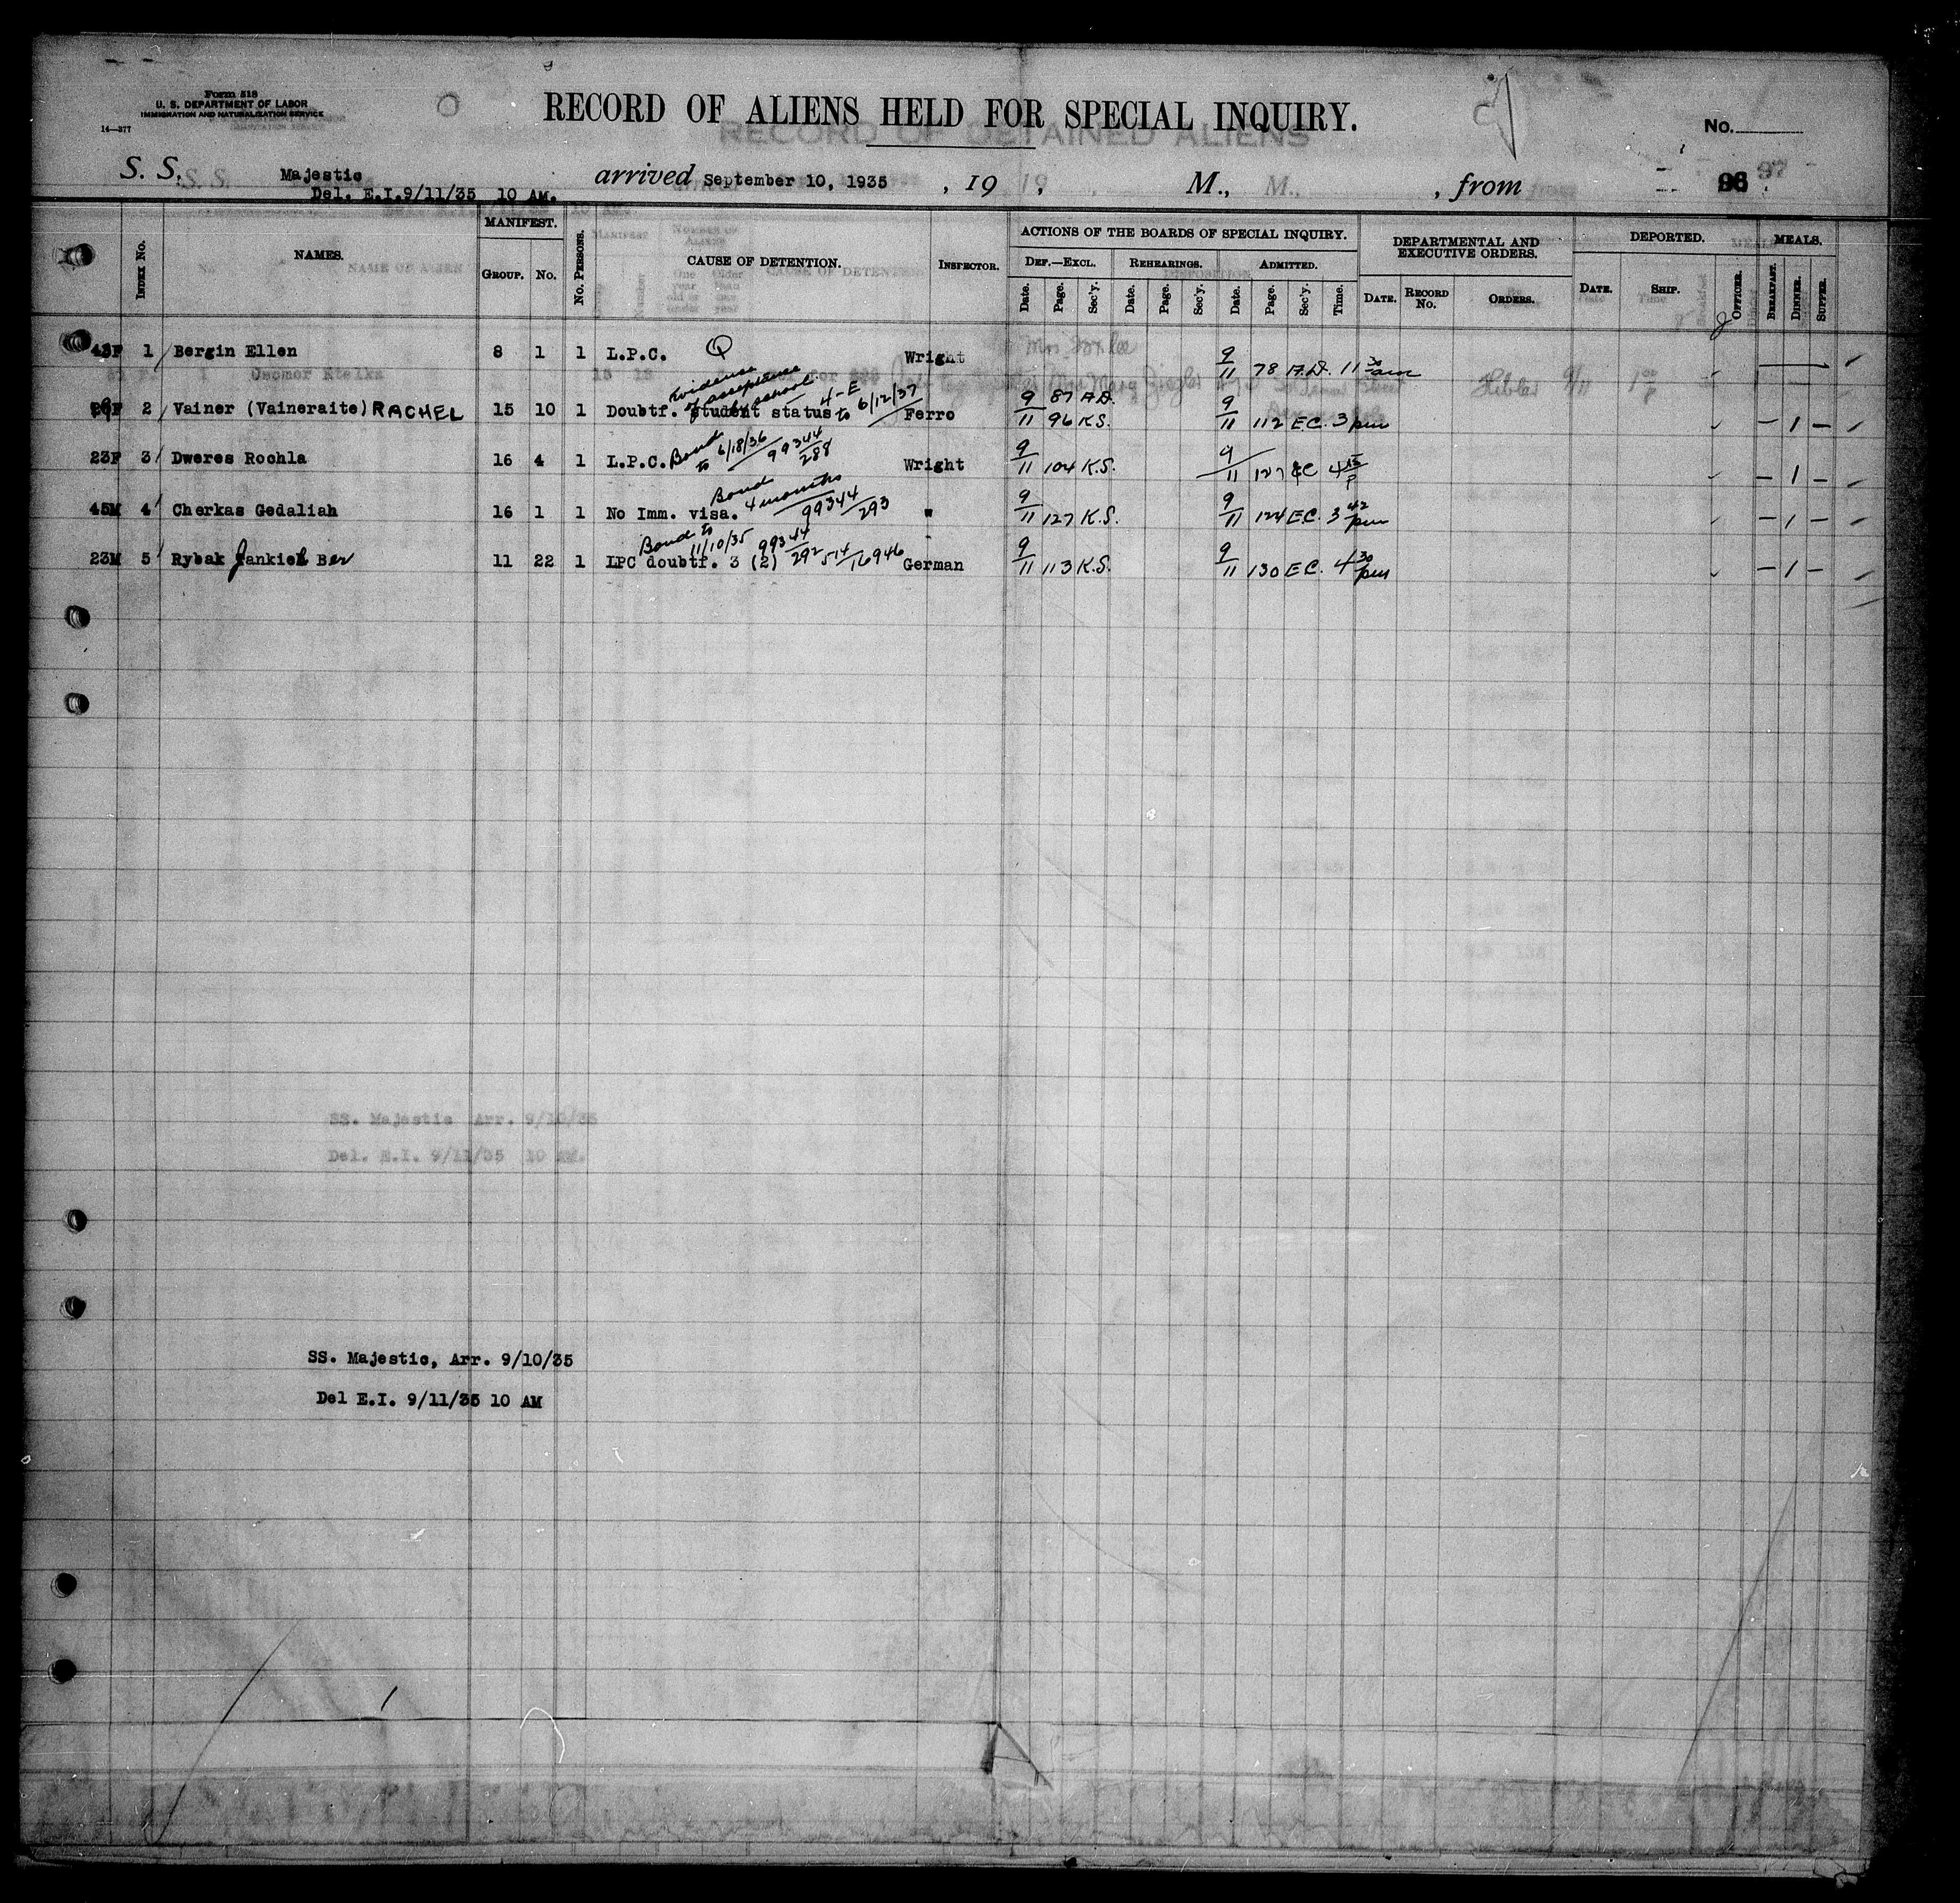 Form 518
U. S. DEPARTMENT OF LABOR
IMMIGRATION AND NATURALIZATION SERVICE
14—377
RECORD OF ALIENS HELD FOR SPECIAL INQUIRY.
No.
S. S. Majestic arrived September 10, 1935 , 19 , M., , from 96 97
Del. E.I.9/11/35 10 AM.
INDEX No. NAMES. MANIFEST. GROUP. No. No. PERSONS. CAUSE OF DETENTION. INSPECTOR. ACTIONS OF THE BOARDS OF SPECIAL INQUIRY. DEPARTMENTAL AND EXECUTIVE ORDERS. DEPORTED. MEALS.
DEF.—EXCL. REHEARINGS. ADMITTED.
Date. Page. Sec'y. Date. Page. Sec'y. Date. Page. Sec'y. Time. DATE. RECORD No. ORDERS. DATE. SHIP. OFFICER. BREAKFAST. DINNER. SUPPER.
43F 1 Bergin Ellen 8 1 1 L.P.C. Q Wright 9/11 78 A.D. 11 30 am
Evidence of acceptance by school
2 Vainer (Vaineraite) RACHEL 15 10 1 Doubtf. student status 4-E to 6/12/37 Ferro 9/11 87 A.D. 96 K.S. 9/11 112 E.C. 3 pm — 1 —
23F 3 Dweres Rochla 16 4 1 L.P.C. Bond to 6/18/36 99344/288 Wright 9/11 104 K.S. 9/11 127 EC 4 15 p — 1 —
45M 4 Cherkas Gedaliah 16 1 1 No Imm. visa. Bond 4 months 99344/293 " 9/11 127 K.S. 9/11 124 E.C. 3 42 pm — 1 —
23M 5 Rybak Jankiel Ber 11 22 1 LPC doubtf. 3 (2) Bond to 11/10/35 99344/292 German 9/11 113 K.S. 9/11 130 E.C. 4 30 pm — 1 —
SS. Majestic Arr. 9/10/35
Del. E.I. 9/11/35 10 AM.
SS. Majestic, Arr. 9/10/35
Del E.I. 9/11/35 10 AM